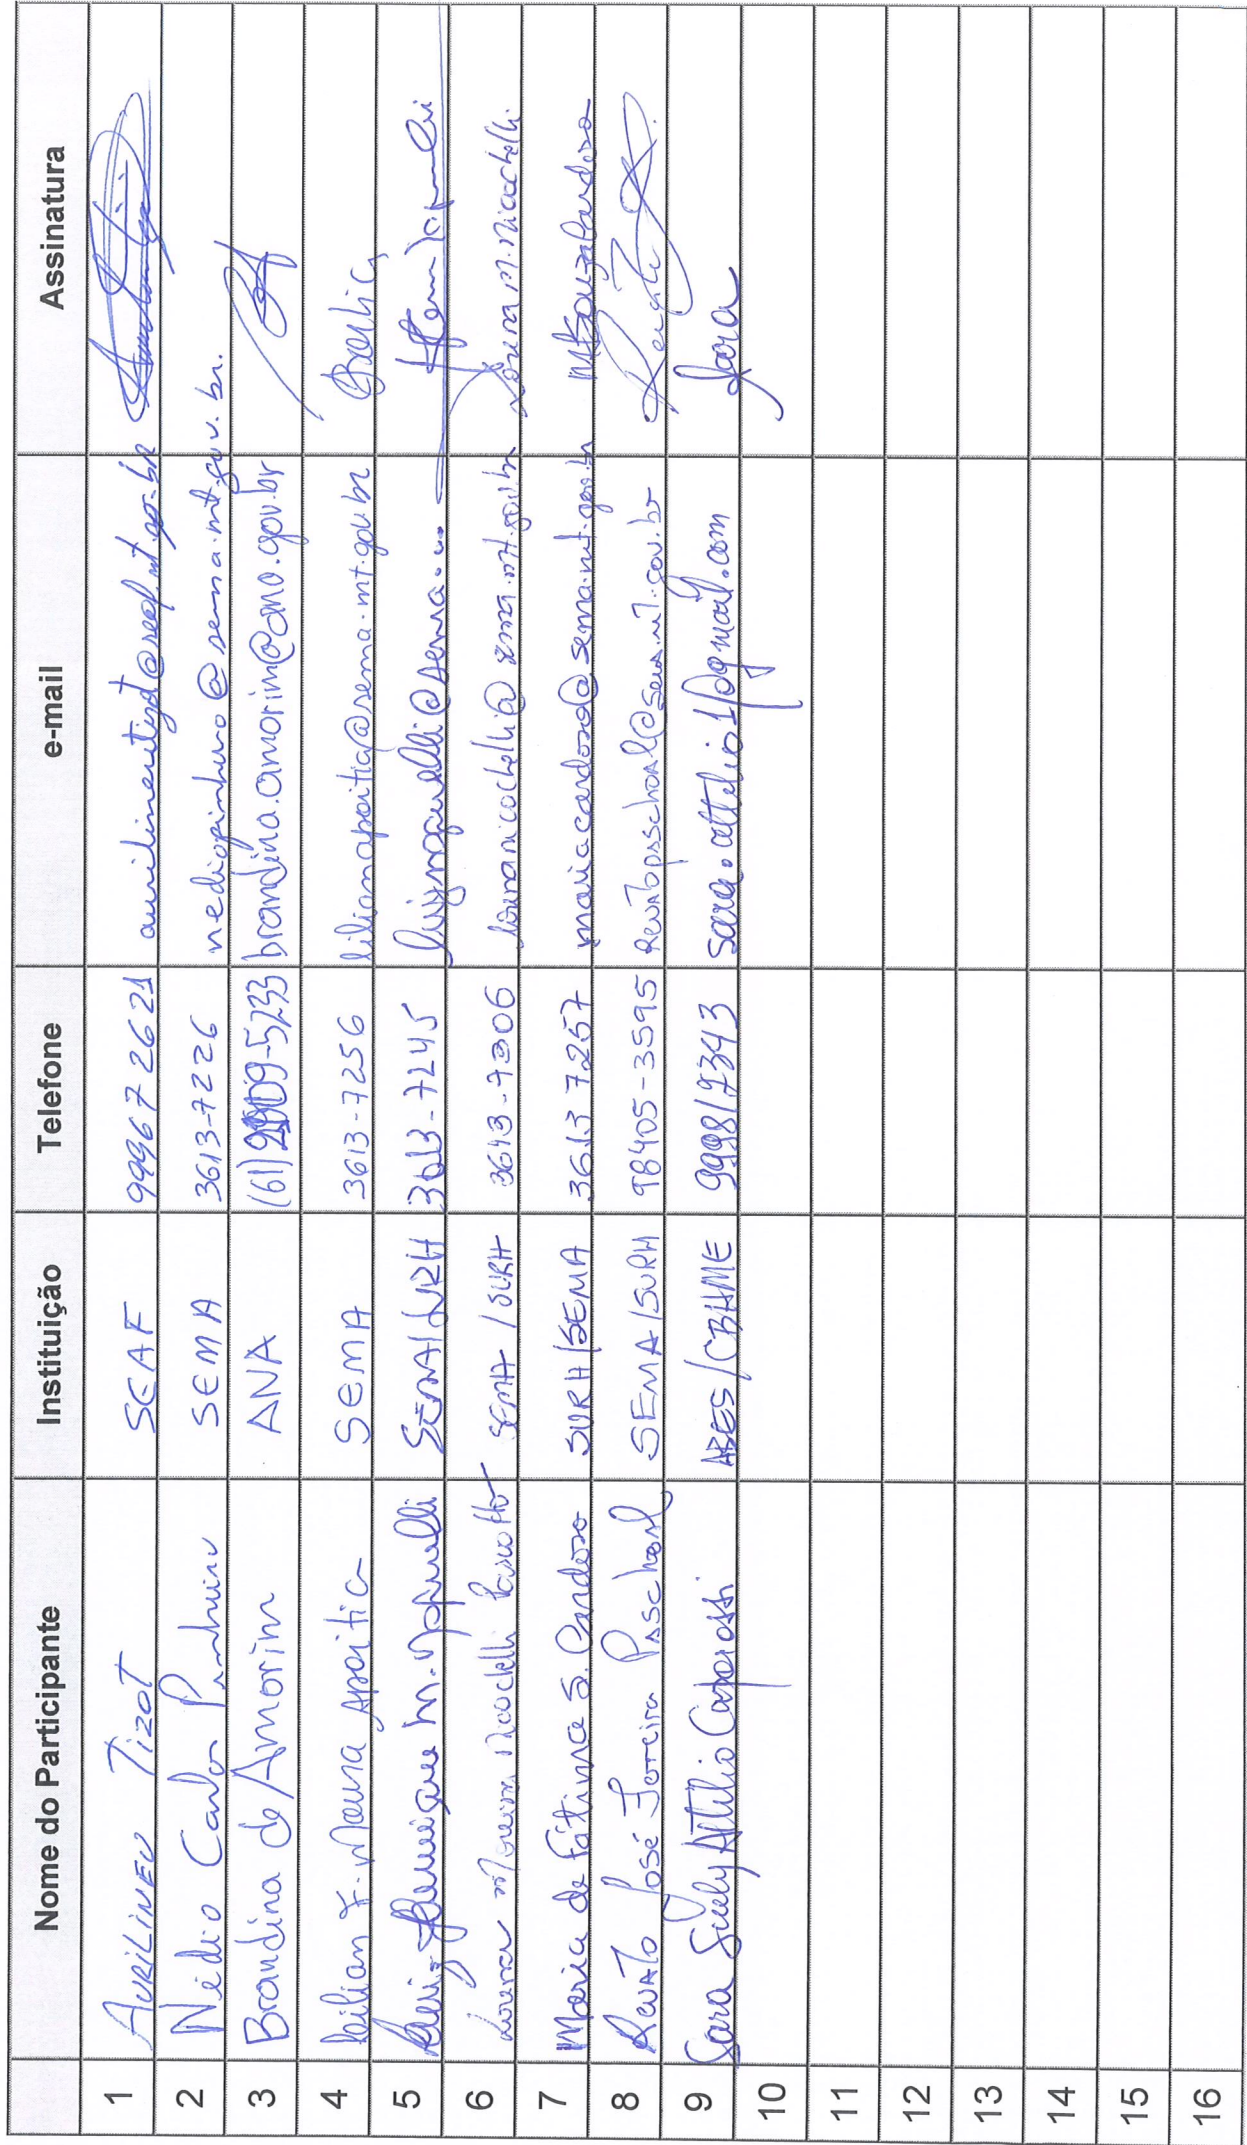 Nome do Participante Instituição Telefone e-mail Assinatura
1 AURILINEU TIZOT SEAF 99967 2621
2 Nédio Carlos Pinheiro SEMA 3613-7226 nediopinheiro@sema.mt.gov.br.
3 Brandina de Amorim ANA (61) brandina.amorim@ana.gov.br
4 Lilian F. Moura Apoitia SEMA 3613-7256 lilianapoitia@sema.mt.gov.br
5 Luiz Henrique M. Noquelli SEMA/SURH 3613-7245 luiznoquelli@sema...
6 Lourena Moreira Nicochelli SEMA/SURH 3613-7306
7 Maria de Fátima S. Cardoso SURH/SEMA 3613 7257 mariacardoso@sema.mt.gov.br MFSouzaCardoso
8 RENATO José Ferreira PASchoAl SEMA/SURH 98405-3595 Renatopaschoal@sema.mt.gov.br Renato
9 Sara Suely Attilio Caporossi ABES/CBHME 999817343 sara.attilio1@gmail.com Sara
10
11
12
13
14
15
16